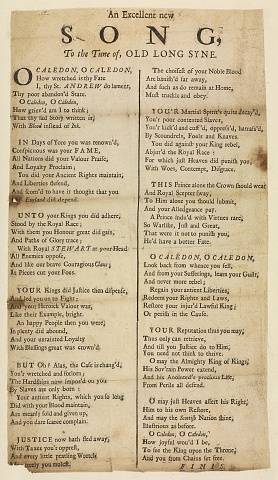 An Excellent new
SONG,
To the Tune of, OLD LONG SYNE.
O CALEDON, O CALEDON,
How wretched is thy Fate
I, thy St. ANDREW do lament,
Thy poor abandon'd State.
O Caledon, O Caledon,
How griev'd am I to think;
That thy sad Story written is,
With Blood instead of Ink.
IN Days of Yore you was renown'd,
Conspicuous was your FAME,
All Nations did your Valour Praise,
And Loyalty Proclaim;
You did your Ancient Rights maintain,
And Liberties defend,
And scorn'd to have it thought that you
England did depend.
UNTO your Kings you did adhere,
Stood by the Royal Race;
With them you Honour great did gain,
And Paths of Glory trace;
With Royal STEWART at your Head
All Enemies oppose,
And like brave Couragious
In Pieces cut your Foes.
YOUR Kings did Justice then dispense,
And led you on to Fight:
And your Heroick Valour was,
Like their Example, bright.
An happy People then you were,
In plenty did abound,
And your untainted Loyalty
With Blessings great was crown'd.
BUT Oh! Alas, the Case is chang'd,
You'r wretched and forlorn;
The Hardships now impos'd on you
By Slaves are only born:
Your antient Rights, which you so long
Did with your Blood maintain,
Are meanly sold and given up,
And you dare scarce complain.
JUSTICE now hath fled away,
With Taxes you'r opprest,
And every little prateing Wretch
you molest.
The choisest of your Noble Blood
Are banish'd far away,
And such as do remain at Home,
Must truckle and obey.
YOU'R Martial Spirit's quite decay'd,
You'r poor contented Slaves,
You'r kick'd and cuff'd, oppress'd, hatrass'd,
By Scoundrels, Fools and Knaves.
You did against your King rebel,
Abjur'd the Royal Race:
For which just Heaven did punish you,
With Woes, Contempt, Disgrace.
THIS Prince alone the Crown should wear
And Royal Scepter sway;
To Him alone you should submit,
And your Allegiance pay.
A Prince indu'd with Virtues rare,
So Warlike, Just and Great,
That were it not to punish you,
He'd have a better Fate.
O CALEDON, O CALEDON,
Look back from whence you fell,
And from your Sufferings, learn your Guilt,
And never more rebel;
Regain your antient Liberties,
Redeem your Rights and Laws,
Restore your injur'd Lawful King;
Or perish in the Cause.
YOUR Reputation thus you may,
Thus only can retrieve,
And till you Justice do to Him,
You need not think to thrive.
O may the Almighty King of Kings,
His Sov'raign Power extend,
And his Anointed's precious Life,
From Perils all defend.
O may just Heaven assert his Right,
Him to his own Restore,
And may the Scotish Nation shine,
Illustrious as before.
O Caledon, O Caledon,
How joyful wou'd I be,
To see the King upon the Throne,
And you from Chains set free.
FINIS.